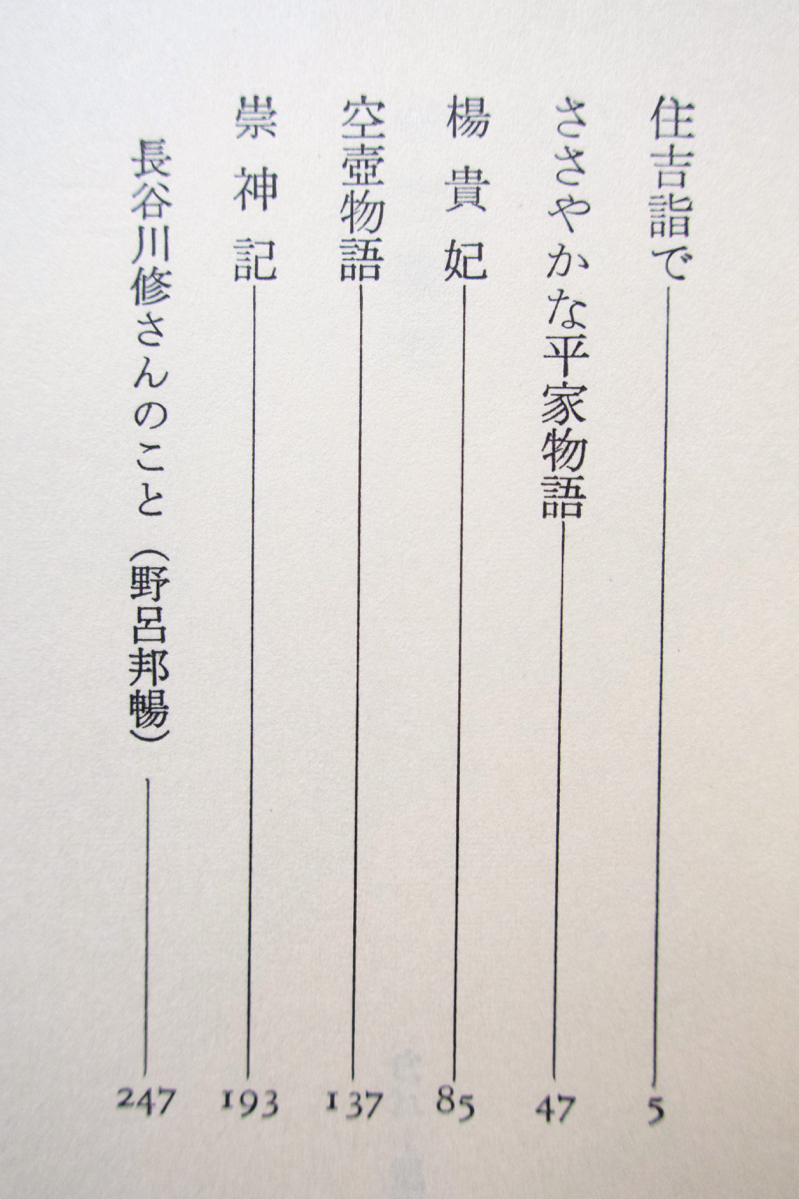 住吉詣で 5
ささやかな平家物語 47
楊貴妃 85
空壺物語 137
崇神記 193
長谷川修さんのこと（野呂邦暢） 247